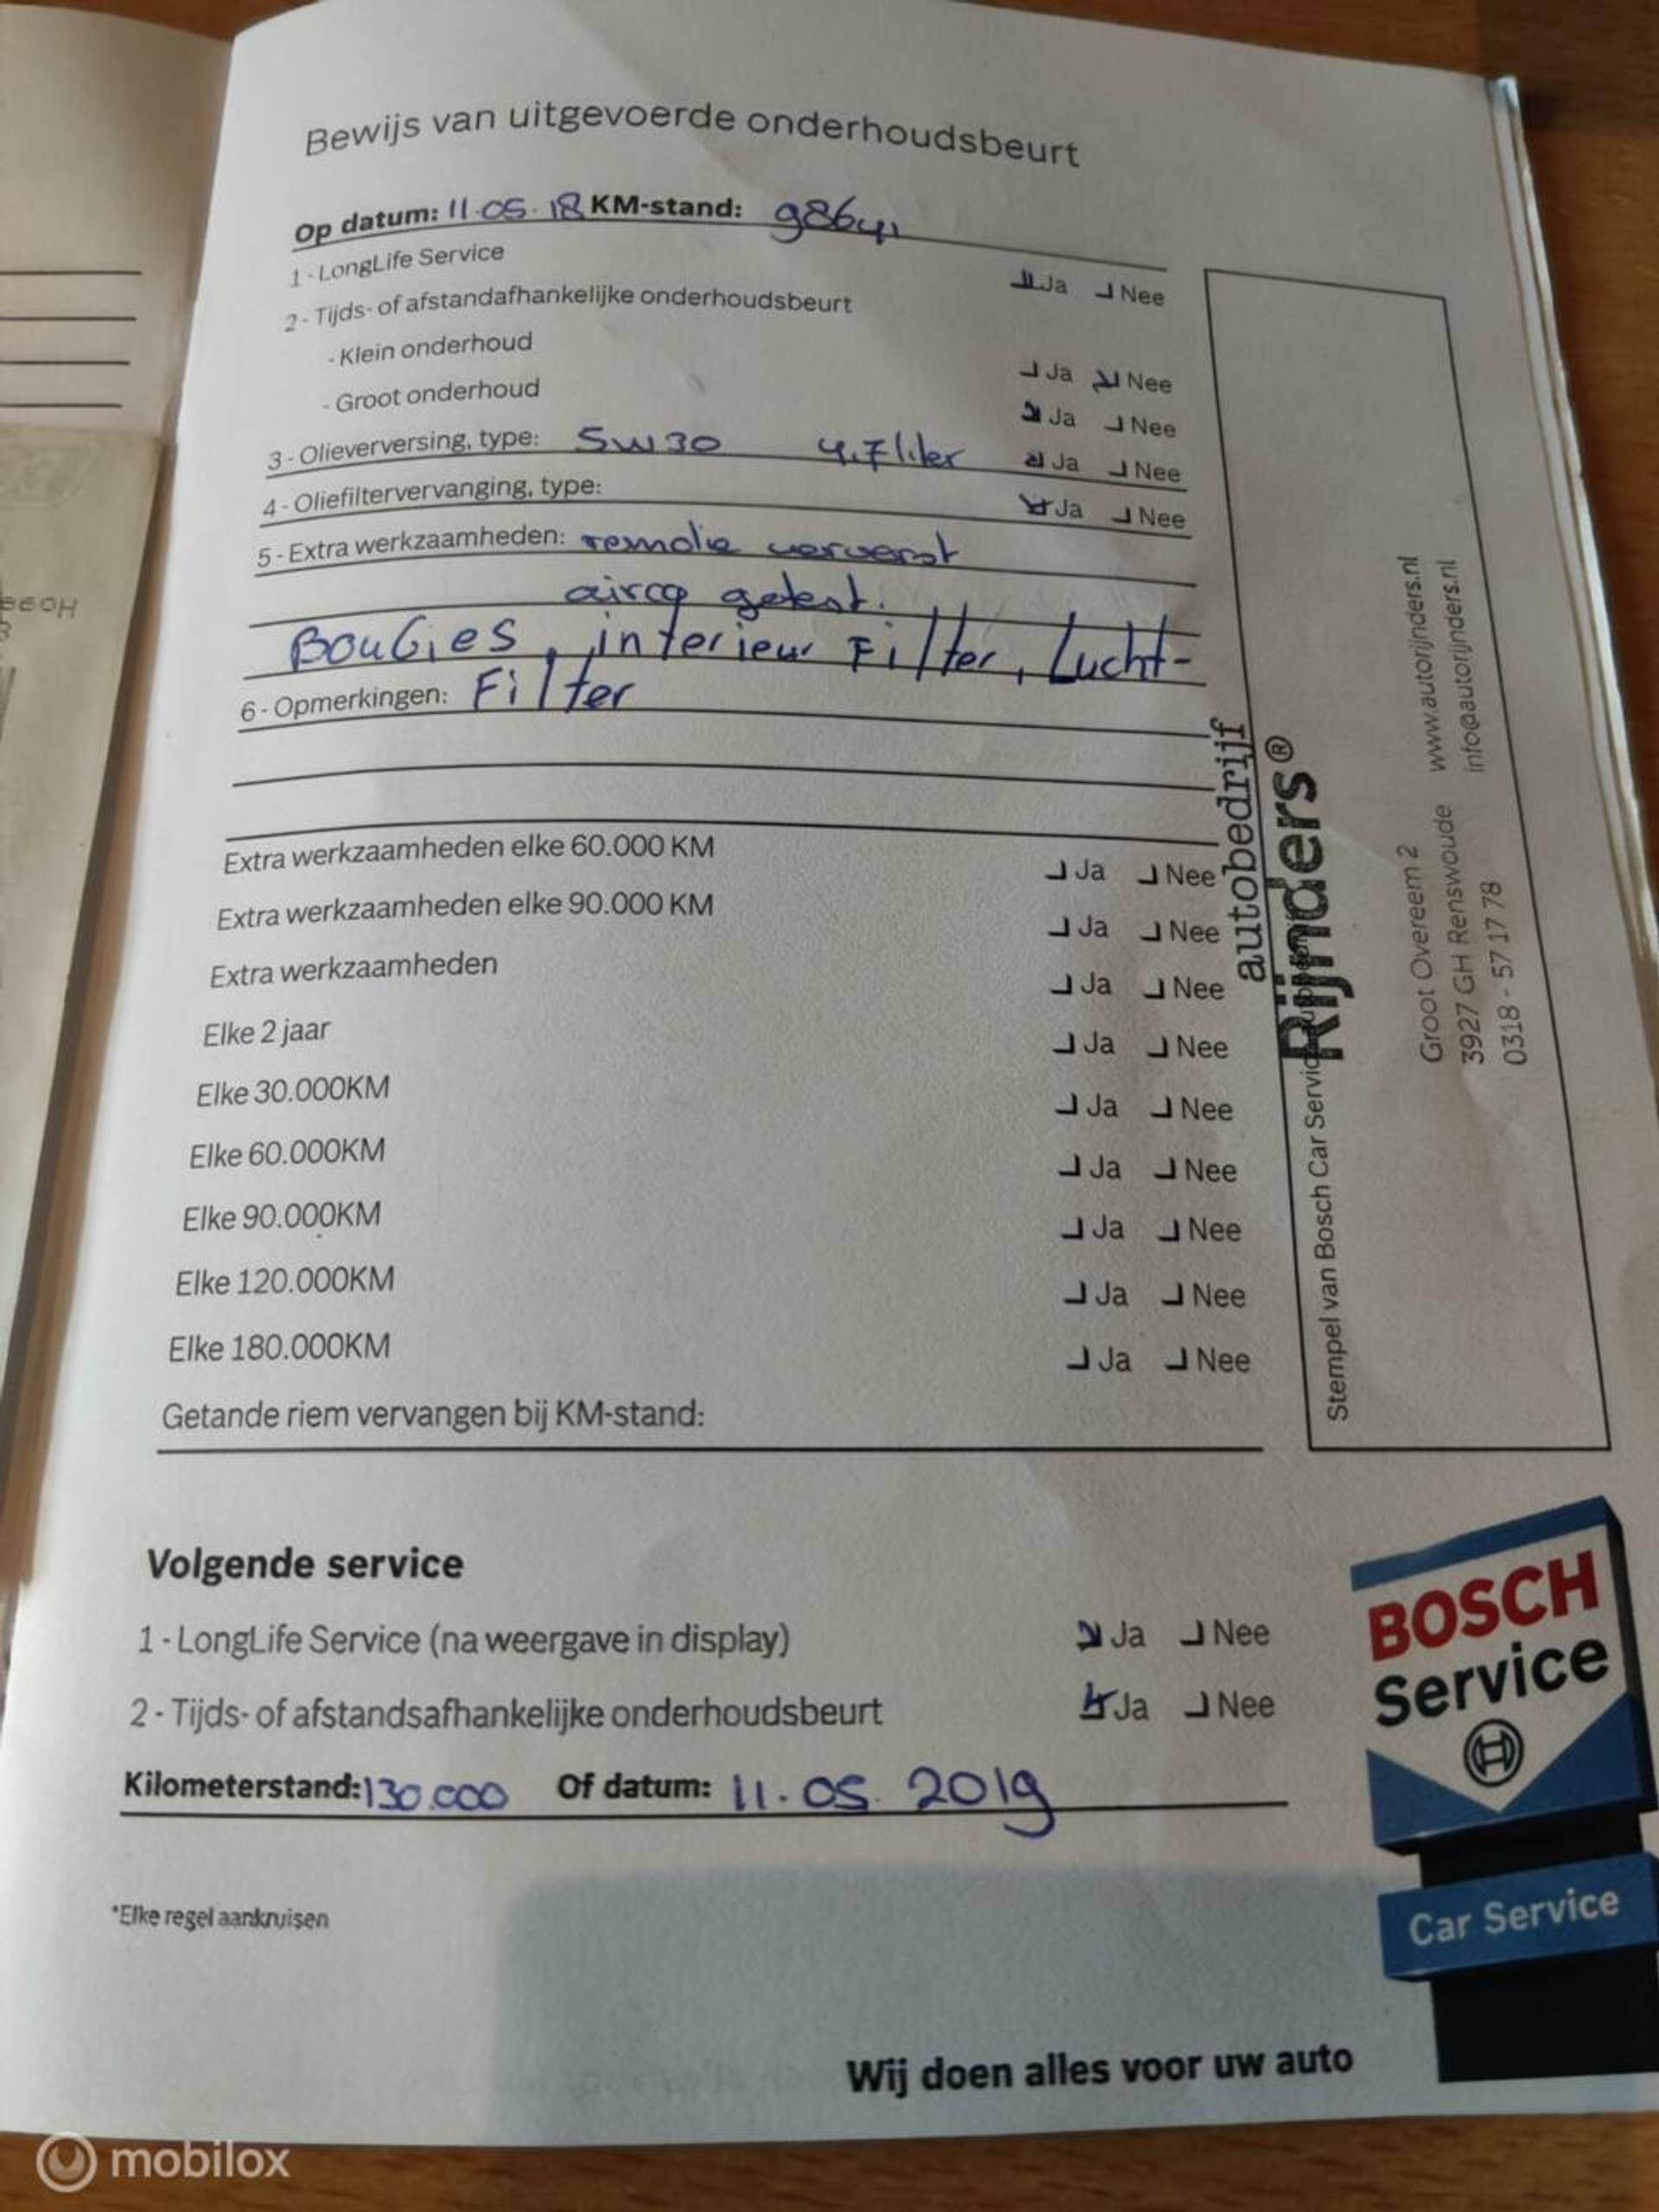 Bewijs van uitgevoerde onderhoudsbeurt
Op datum: 11-05-18 KM-stand: 98641
1 - LongLife Service Ja Nee
2 - Tijds- of afstandafhankelijke onderhoudsbeurt
- Klein onderhoud Ja Nee
- Groot onderhoud Ja Nee
3 - Olieverversing, type: 5W30 4.7 liter Ja Nee
4 - Oliefiltervervanging, type: Ja Nee
5 - Extra werkzaamheden: remolie ververst
airco getest.
Bougies, interieur Filter, Lucht-
6 - Opmerkingen: Filter
Extra werkzaamheden elke 60.000 KM Ja Nee
Extra werkzaamheden elke 90.000 KM Ja Nee
Extra werkzaamheden Ja Nee
Elke 2 jaar Ja Nee
Elke 30.000KM Ja Nee
Elke 60.000KM Ja Nee
Elke 90.000KM Ja Nee
Elke 120.000KM Ja Nee
Elke 180.000KM Ja Nee
Getande riem vervangen bij KM-stand:
autobedrijf
Rijnders®
Stempel van Bosch Car Service
Groot Overeem 2 www.autorijnders.nl
3927 GH Renswoude info@autorijnders.nl
0318 - 57 17 78
Volgende service
1 - LongLife Service (na weergave in display) Ja Nee
2 - Tijds- of afstandsafhankelijke onderhoudsbeurt Ja Nee
Kilometerstand: 130.000 Of datum: 11.05.2019
*Elke regel aankruisen
BOSCH
Service
Car Service
Wij doen alles voor uw auto
mobilox